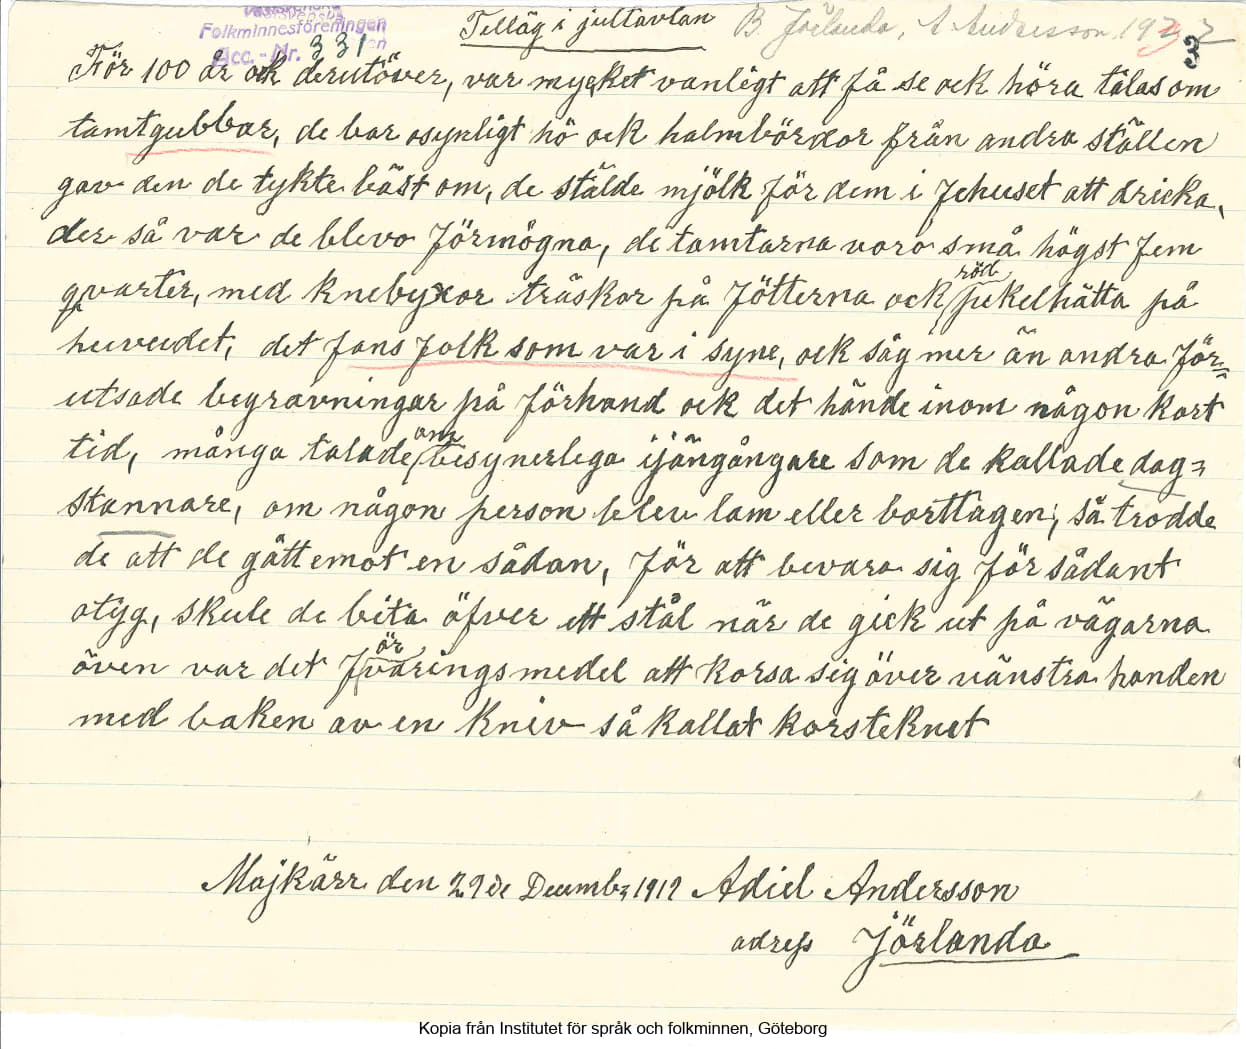 Västsvenska
Folkminnesföreningen
Acc.-Nr. 331
Tilläg i jultavlan
B. Jörlanda, A Andersson 1922
3
För 100 år ock derutöver, var mycket vanligt att få se ock höra talas om
tamtgubbar, de bar osynligt hö ock halmbördor från andra ställen
gav den de tykte bäst om, de stälde mjölk för dem i fehuset att dricka,
der så var de blevo förmögna, de tamtarna voro små högst fem
qvarter, med knebyxor träskor på fötterna ock röd pikelhätta på
huvudet, det fans folk som var i syne, ock såg mer än andra för=
utsade begravningar på förhand ock det hände inom någon kort
tid, många talade om besynerlega ijängångare som de kallade dag=
stannare, om någon person blev lam eller borttagen, så trodde
de att de gått emot en sådan, för att bevara sig för sådant
otyg, skule de bita öfver ett stål när de gick ut på vägarna
även var det förvaringsmedel att korsa sig över vänstra handen
med baken av en kniv så kallat korsteknet
Majkärr den 29de Decembr 1919 Adiel Andersson
adress Jörlanda
Kopia från Institutet för språk och folkminnen, Göteborg